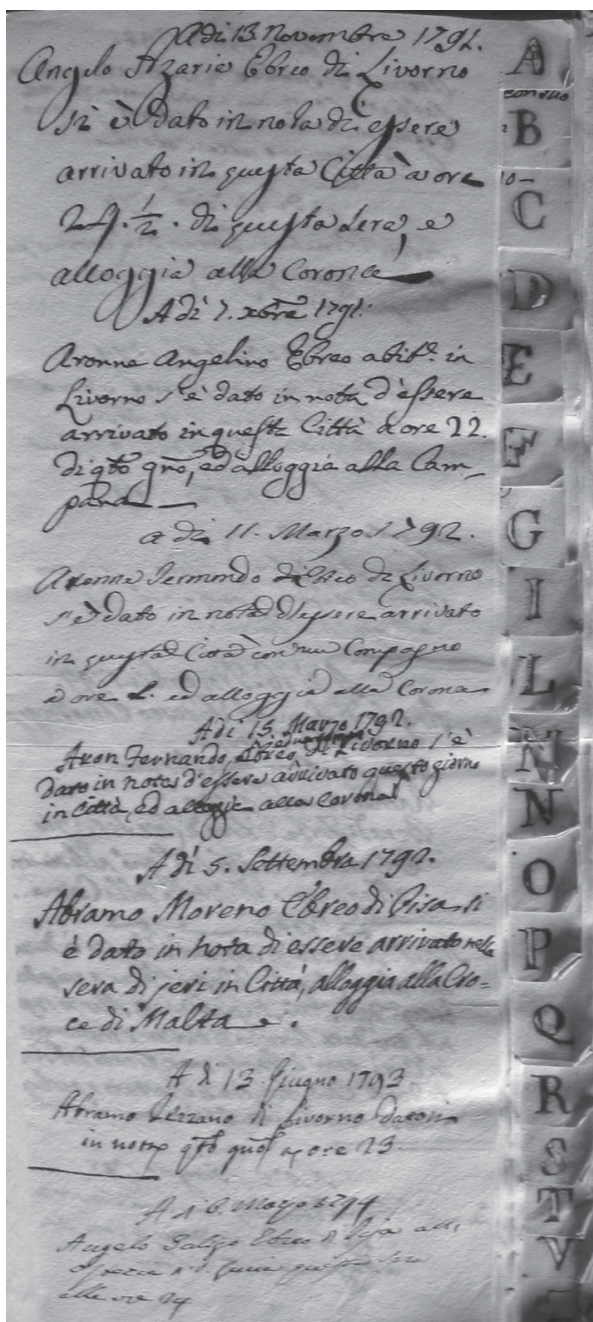 Adi 13 Novembre 1791.
Angelo Azaria Ebreo di Livorno
si è dato in nota di essere
arrivato in questa Città a ore
24. ½. di questa sera, e
alloggia alla Corona
Adi 7. xbre 1791.
Aronne Angelino Ebreo abit.e in
Livorno s'è dato in nota d'essere
arrivato in questa Città a ore 22.
di qto gno, ed alloggia alla Cam-
pana
a di 11. Marzo 1792.
Aronne Ebreo di Livorno
s'è dato in nota d'essere arrivato
in questa Città con un Compagno
a ore ed alloggia alla Corona
Adi 15. Marzo 1792.
Aron Fernando, Ebreo, di Livorno s'è
dato in nota d'essere arrivato questo giorno
in Città, ed alloggia alla Corona
A di 5. Settembre 1792.
Abramo Moreno Ebreo di Pisa si
è dato in nota di essere arrivato nella
sera di jeri in Città, alloggia alla Cro=
ce di Malta.
A di 13 Giugno 1793
Abramo di Livorno datosi
in nota qto a ore 23.
A di Marzo 1794
Angelo Ebreo
questa sera
alle ore 24
A
con suo
B
10
C
D
E
F
G
I
L
N
O
P
Q
R
S
T
V